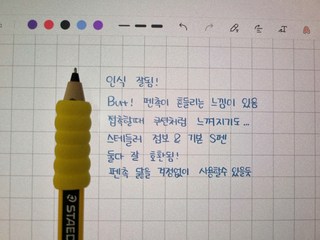 인식 잘됨!
But! 펜촉이 흔들리는 느낌이 있음
필촉릴때 쿠션처럼 느껴지기도...
스테들러 점보 & 기본 S펜
둘다 잘 호환됨!
펜촉 닳을 걱정없이 사용할수 있을듯
STAED